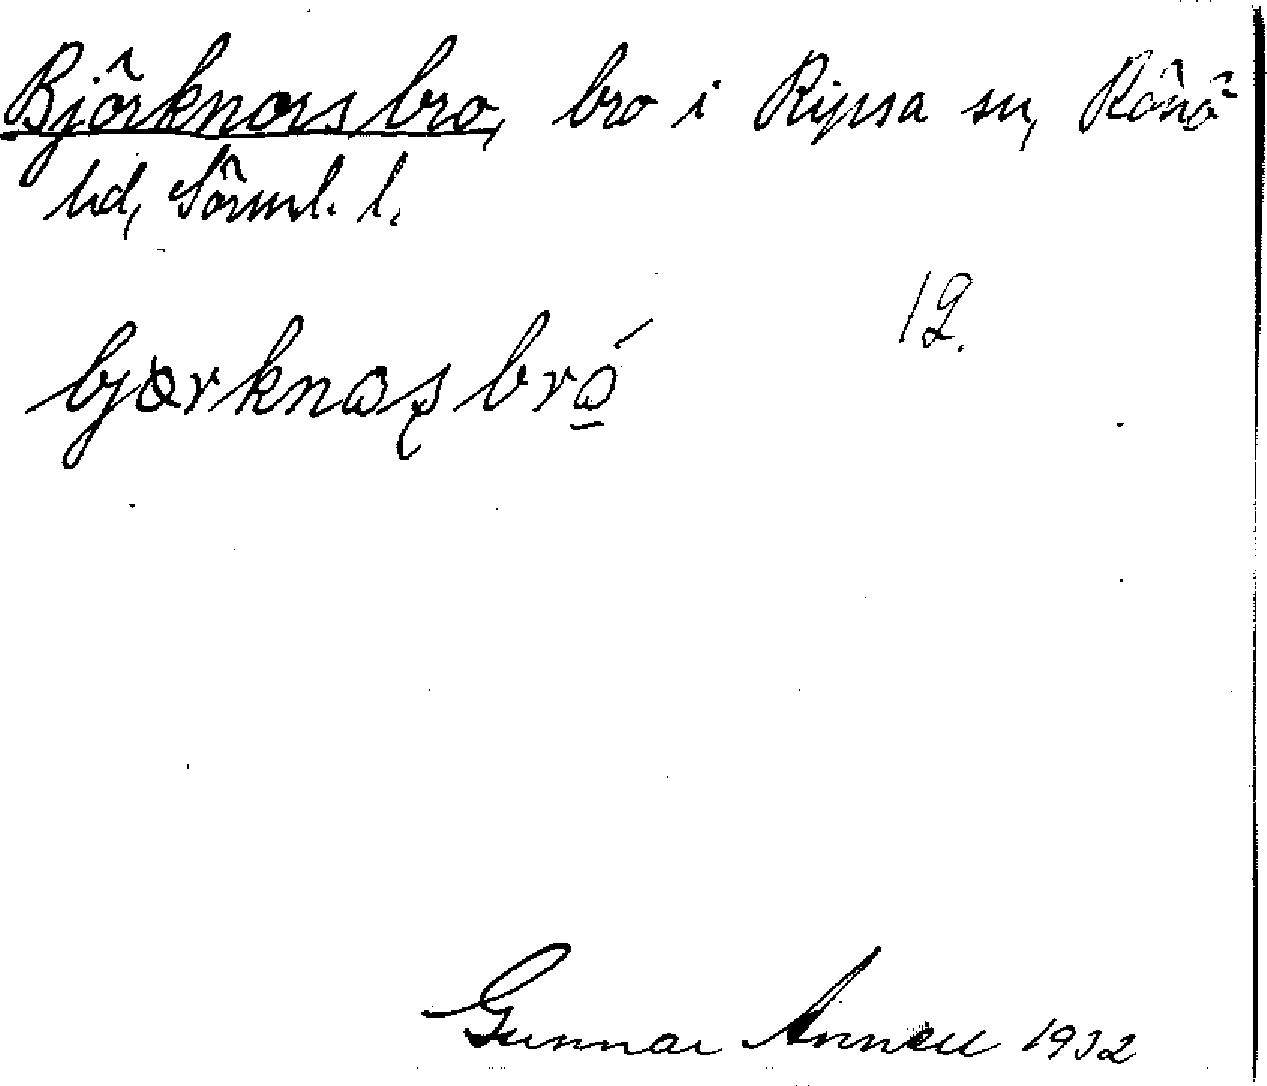 Björknors bro, bro i Ripsa sn, Rönö
hd, Sörml. l.
12.
Gunnar Annell 1932